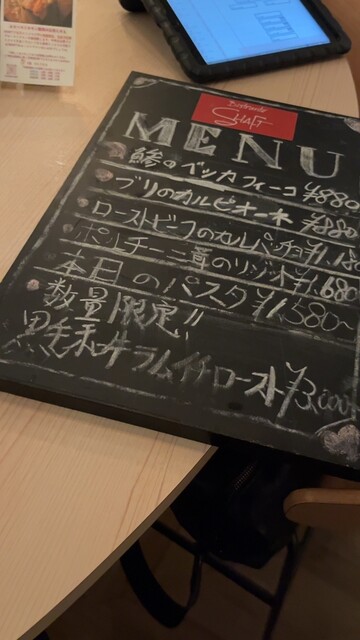 Ristorante
SHAFT
MENU
鯵のベッカフィーコ ¥880
ブリのカルピオーネ ¥880
ローストビーフのカルパッチョ ¥1,18
ポルチーニ茸のリゾット ¥1,680
本日のパスタ ¥1,580~
数量限定!!
黒毛和牛ラムイチロースト ¥3,000